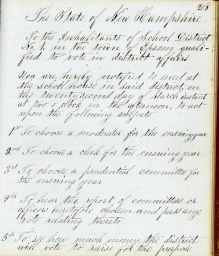 218
The State of New Hampshire
To the Inhabitants of School District
No 1. in the town of Epsom quali-
fied to vote in district affairs
You are hereby notified to meet at
the school house in said district on
the twenty second day of March instant
at two o clock in the afternoon, to act
upon the following subjects
1st To choose a moderator for the ensuing year
2nd To choose a clerk for the ensuing year
3rd To choose a prudential committee for
the ensuing year
4th To hear the report of committees or
officers heretofore chosen and pass any
vote relating thereto
5th To see how much money the district
will vote to raise for the purpose